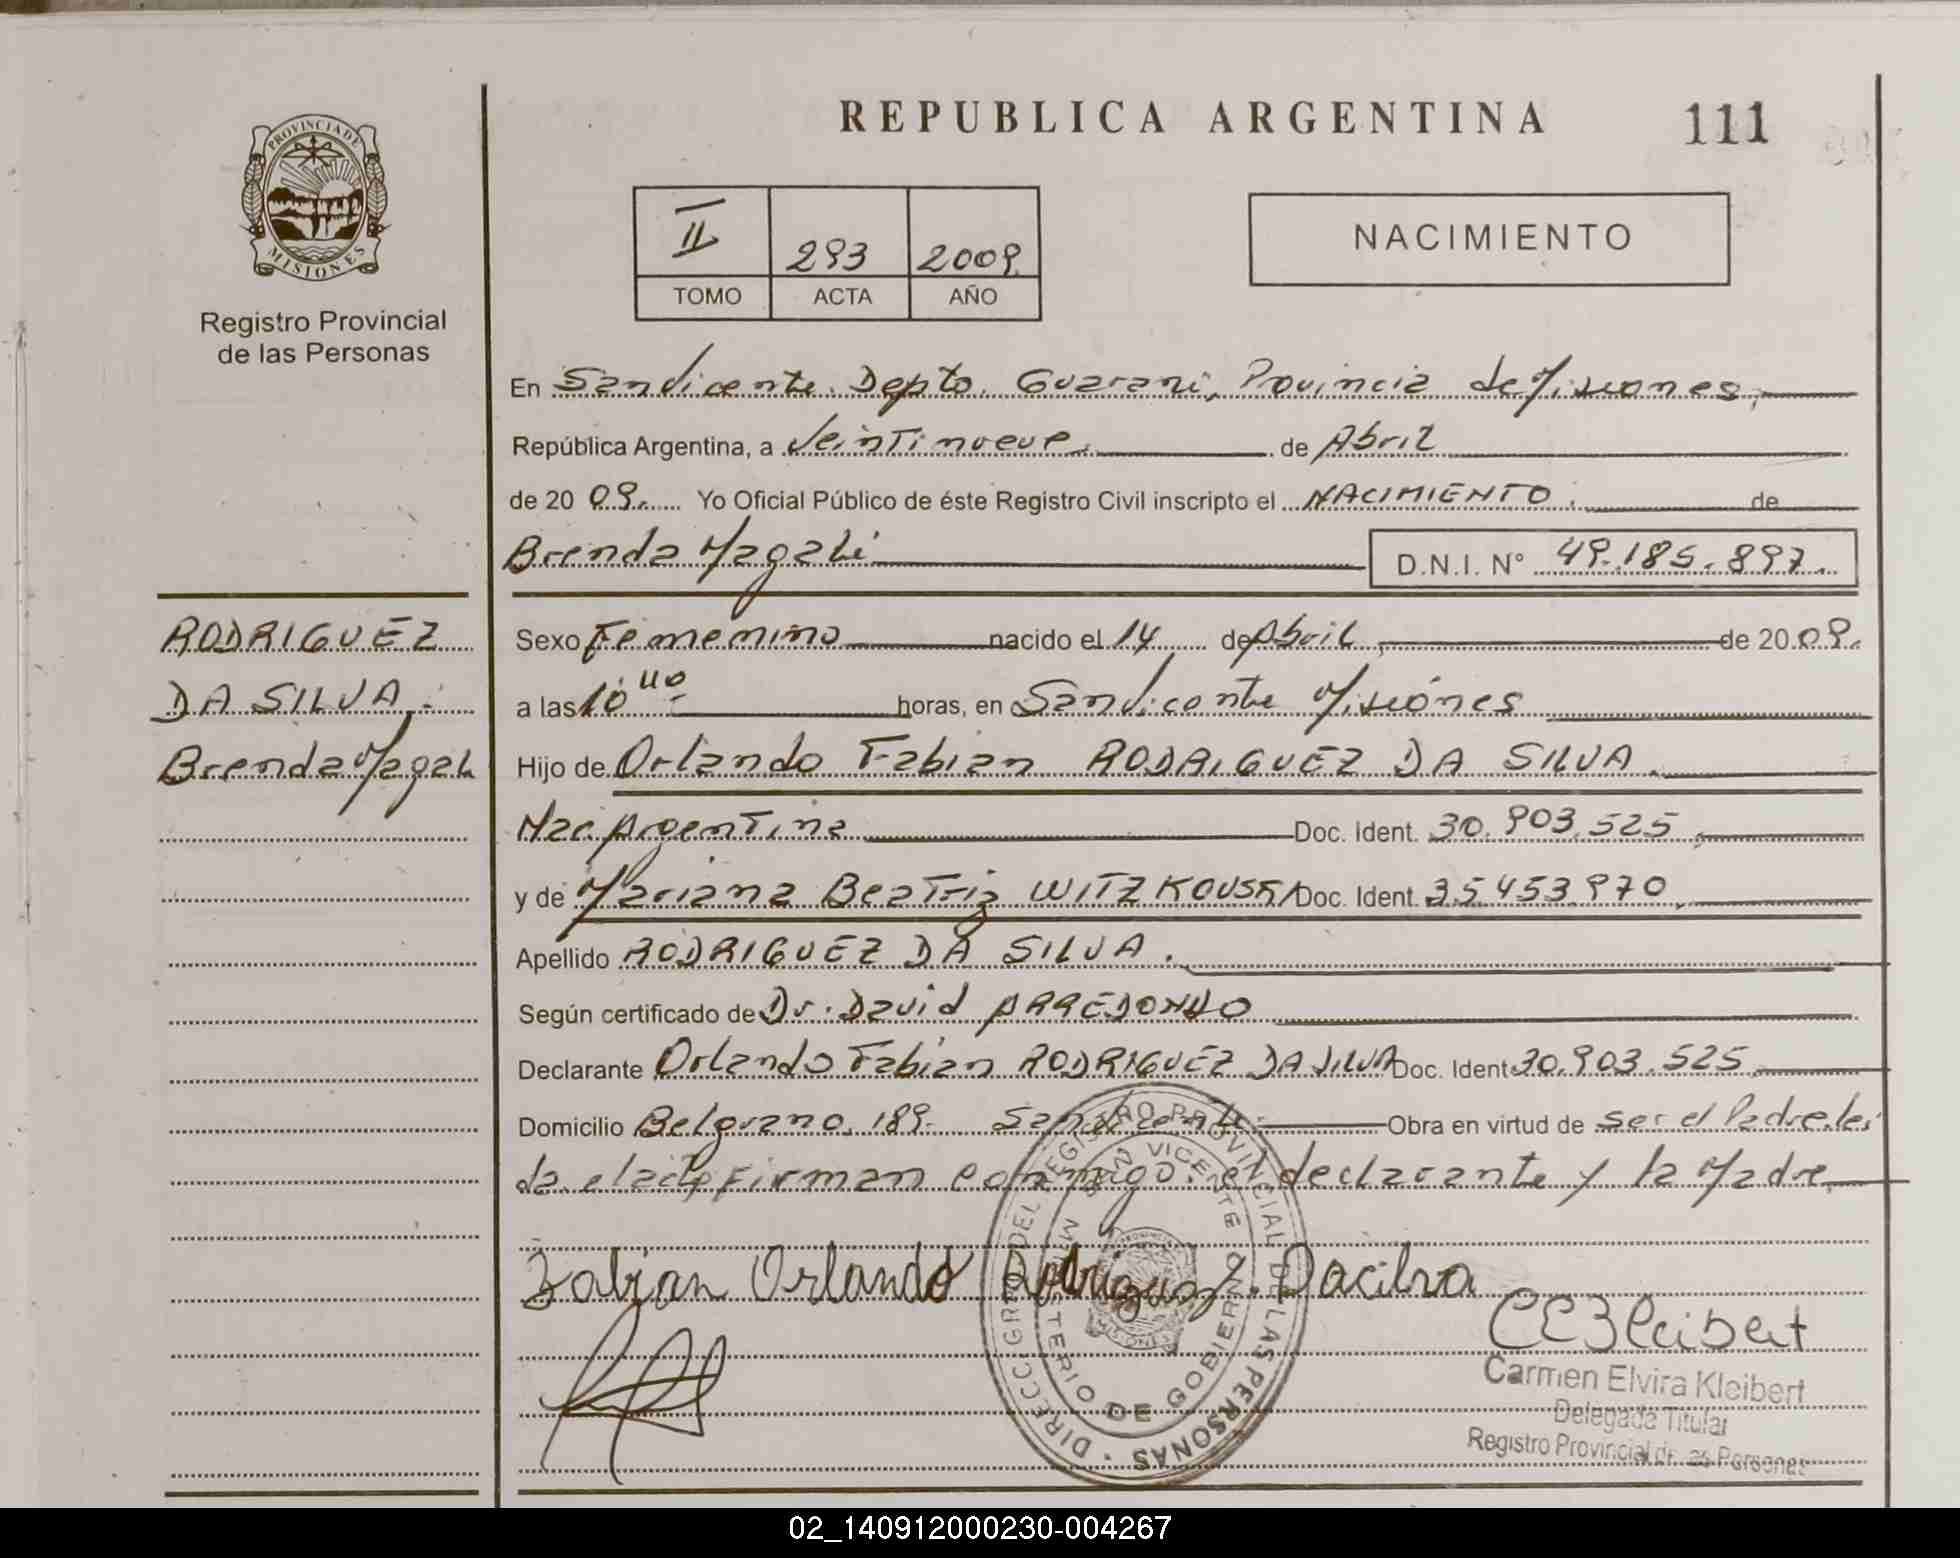 REPUBLICA ARGENTINA
111
PROVINCIA DE
MISIONES
Registro Provincial
de las Personas
II 293 2009
TOMO ACTA AÑO
NACIMIENTO
En San Vicente. Depto. Guarani, Provincia de Misiones,
República Argentina, a Veintinueve. de Abril
de 20 09. Yo Oficial Público de éste Registro Civil inscripto el NACIMIENTO. de
Brenda Magali D.N.I. Nº 49.185.897.
RODRIGUEZ
DA SILVA.
Brenda Magali
Sexo Femenino nacido el 14 de Abril, de 20 09.
a las 10 horas, en San Vicente Misiónes
Hijo de Orlando Fabian RODRIGUEZ DA SILVA.
Nac. Argentina Doc. Ident. 30.903.525
y de Mariana Beatriz WITZKOUSKI Doc. Ident. 35.453.970
Apellido RODRIGUEZ DA SILVA.
Según certificado de Dr. David ARREDONDO
Declarante Orlando Fabian RODRIGUEZ DA SILVA Doc. Ident 30.903.525
Domicilio Belgrano. 189. San Vicente Obra en virtud de ser el Padre. lei
da el acta Firman conmigo. el declarante y la Madre
Fabian Orlando Rodriguez. Dacilva
DIRECC GRAL DEL REGISTRO PROVINCIAL DE LAS PERSONAS
SAN VICENTE
MINISTERIO DE GOBIERNO
MISIONES
CEKleibert
Carmen Elvira Kleibert
Delegada Titular
Registro Provincial de las Personas
02_140912000230-004267